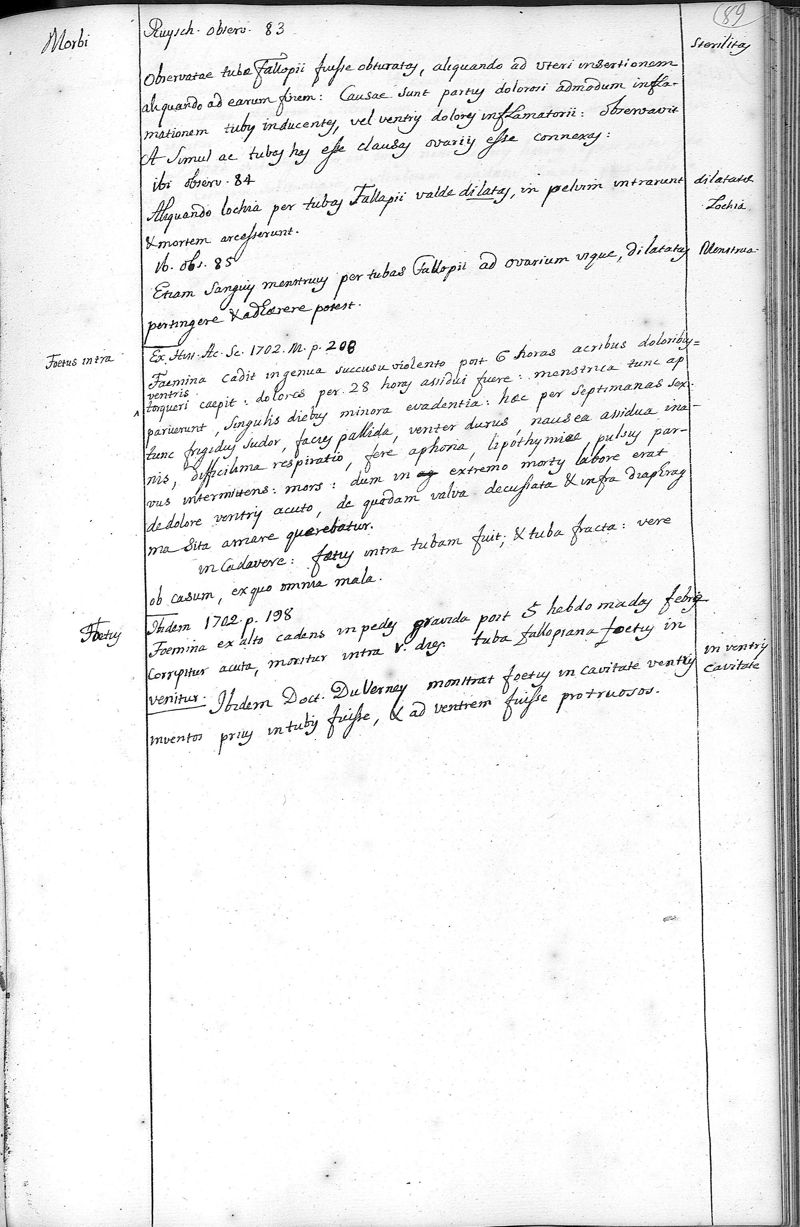 89
Morbi
Ruysch. observ. 83
Sterilitas
Observatae tubae Fallopii fuisse obturatas, aliquando ad uteri insertionem
aliquando ad earum finem: Causae sunt partus dolorosi admodum infla-
mationem tubis inducentes, vel ventris dolores inflamatorii: observavit
A simul ac tubas has esse clausas ovariis esse connexas:
ibi observ. 84
Aliquando lochia per tubas Fallopii valde dilatas, in pelvim intrarunt
dilatatae
Lochia
& mortem arcesserunt.
ib. obs. 85
Etiam sanguis menstruus per tubas Fallopii ad ovarium usque, dilatatas
Menstrua
pertingere & adhaerere potest.
Foetus intra
Ex Hist. Ac. Sc. 1702. M. p. 208
Faemina cadit in genua succusu violento post 6 horas acribus doloribus=
ventris
torqueri caepit: dolores per 28 horas assidui fuere: menstrua tunc ap
paruerunt, singulis diebus minora evadentia: haec per septimanas sex.
tunc frigidus sudor, facies pallida, venter durus, nausea assidua ina-
nis, difficilima respiratio, fere aphonia, lipothymiae, pulsus par-
vus intermittens: mors: dum in extremo mortis labore erat
de dolore ventris acuto, de quadam valva decussata & infra diaphrag
ma sita amare quaerebatur.
in Cadavere: faetus intra tubam fuit; & tuba fracta: vere
ob casum, ex quo omnia mala.
Foetus
Ibidem 1702. p. 198
Foemina ex alto cadens in pedes gravida post 5 hebdomadas febris
corripitur acuta, moritur intra dies. tuba fallopiana foetus in
venitur. Ibidem Doct. Du Verney monstrat foetus in cavitate ventris
in ventris
cavitate
inventos prius in tubis fuisse, & ad ventrem fuisse protruosos.